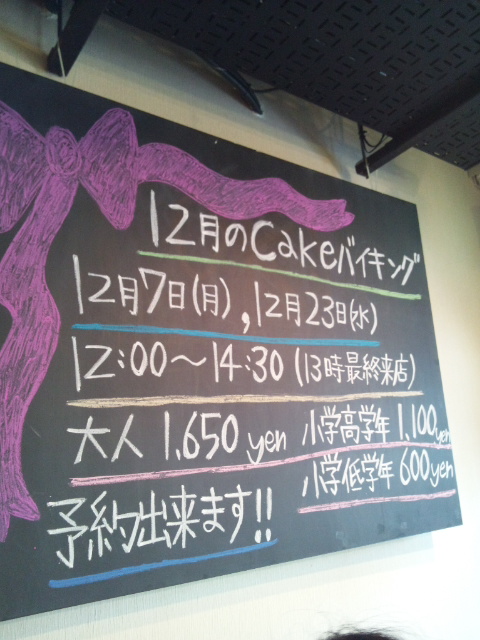 12月のCakeバイキング
12月7日(月), 12月23日(水)
12:00〜14:30 (13時最終来店)
大人 1,650 yen 小学高学年 1,100yen
小学低学年 600yen
予約出来ます!!